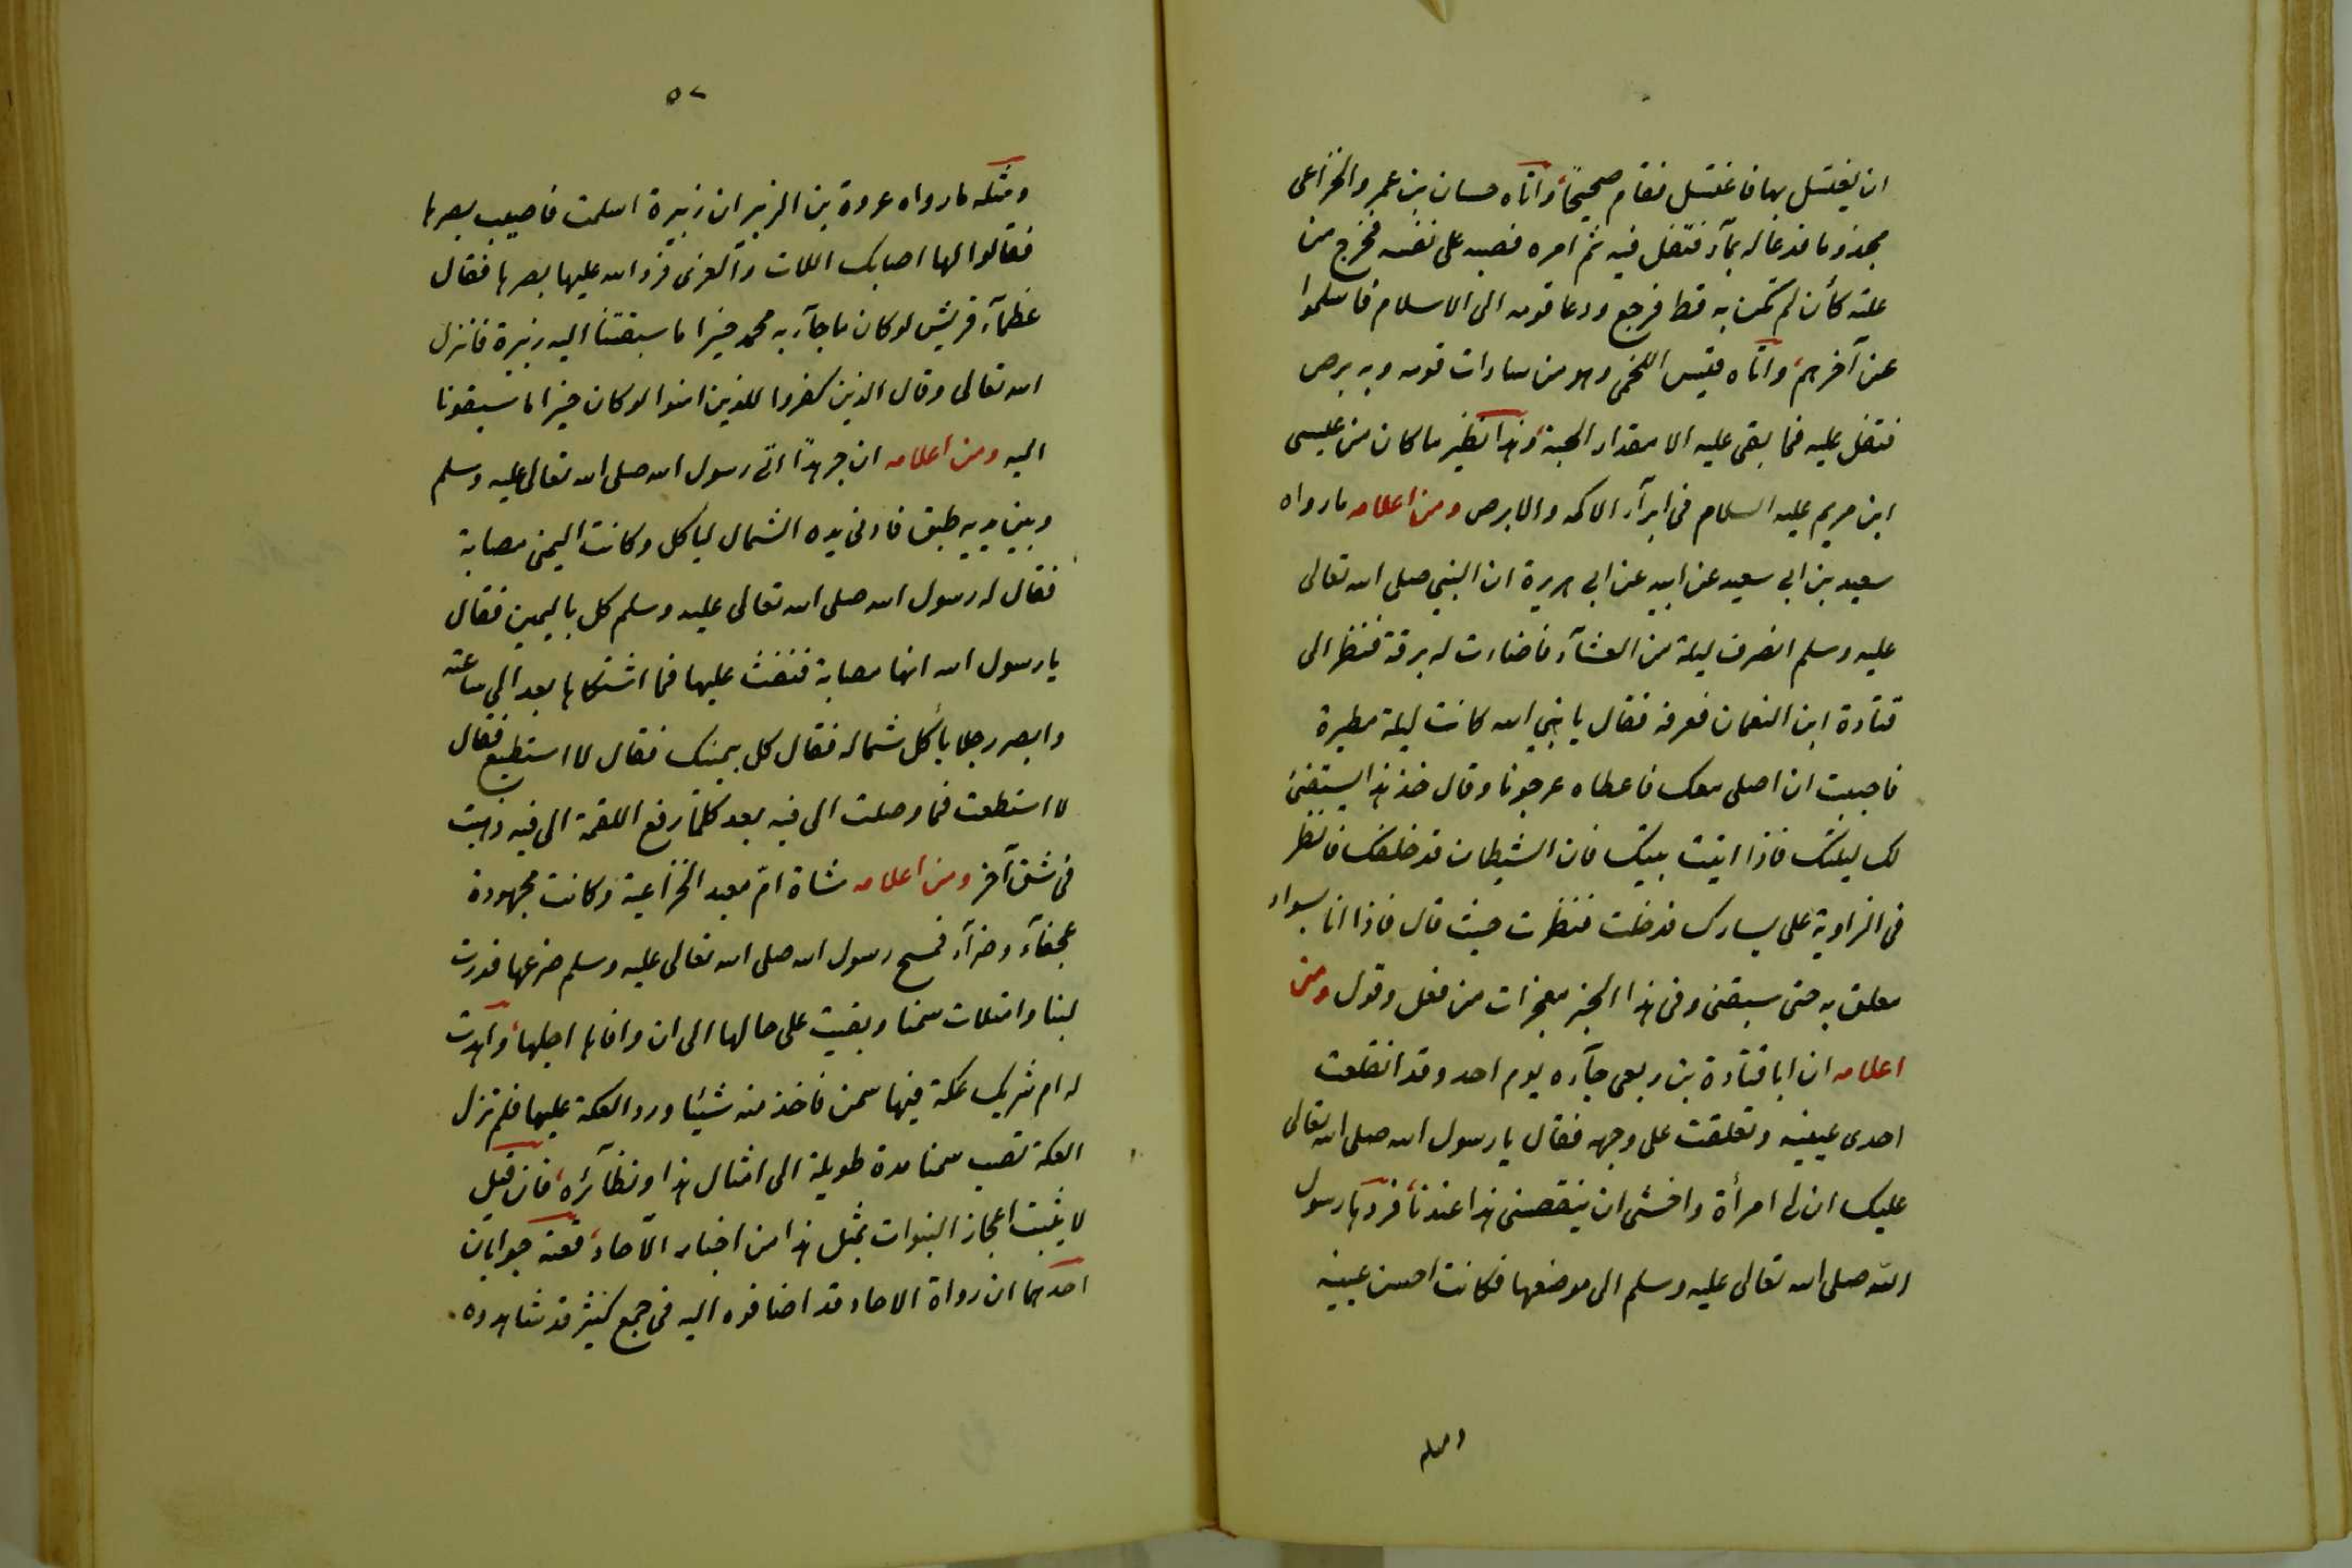 ان يغتسل بها فاغتسل فقام صحيحا واتاه حسان بن عمرو الخزاعى
مجذوما فدعا له بمآء فتفل فيه ثم امره فصبه على نفسه فخرج من
علته كأن لم تكن به قط فرجع ودعا قومه الى الاسلام فاسلموا
عن آخرهم واتاه قيس اللخمى وهو من سادات قومه وبه برص
فتفل عليه فما بقى عليه الا مقدار الحبة وهذا نظير ما كان من عيسى
ابن مريم عليه السلام فى ابرآء الاكمه والابرص ومن اعلامه ما رواه
سعيد بن ابى سعيد عن ابيه عن ابى هريرة ان النبى صلى الله تعالى
عليه وسلم انصرف ليلة من العشآء فاضاءت له برقة فنظر الى
قتادة ابن النعمان فعرفه فقال يا نبى الله كانت ليلة مطيرة
فاحببت ان اصلى معك فاعطاه عرجونا وقال خذ هذا يستضئ
لك ليلتك فاذا اتيت بيتك فان الشيطان قد خلفك فانظر
فى الزاوية على يسارك فدخلت فنظرت حيث قال فاذا انا بسواد
معلق به حتى سبقنى وفى هذا الخبر معجزات من فعل وقول ومن
اعلامه ان ابا قتادة بن ربعى جآءه يوم احد وقد انقلعت
احدى عينيه وتعلقت على وجهه فقال يا رسول الله صلى الله تعالى
عليك ان لى امرأة واخشى ان ينقصنى هذا عندنا فردها رسول
الله صلى الله تعالى عليه وسلم الى موضعها فكانت احسن عينيه
٥٢
ومثله ما رواه عروة بن الزبير ان زنيرة اسلمت فاصيب بصرها
فقالوا لها اصابك اللات والعزى فرد الله عليها بصرها فقال
عظمآء قريش لو كان ما جآء به محمد خيرا ما سبقتنا اليه زنيرة فانزل
الله تعالى وقال الذين كفروا للذين امنوا لو كان خيرا ما سبقونا
اليه ومن اعلامه ان جرهدا اتى رسول الله صلى الله تعالى عليه وسلم
وبين يديه طبق فادنى يده الشمال لياكل وكانت اليمنى مصابة
فقال له رسول الله صلى الله تعالى عليه وسلم كل باليمين فقال
يا رسول الله انها مصابة فنفث عليها فما اشتكاها بعد الى ساعته
وابصر رجلا يأكل شماله فقال كل بيمينك فقال لا استطيع فقال
لا استطعت فما وصلت الى فيه بعد كلما رفع اللقمة الى فيه ذهبت
فى شق آخر ومن اعلامه شاة ام معبد الخزاعية وكانت مجهودة
عجفآء وضرآء فمسح رسول الله صلى الله تعالى عليه وسلم ضرعها فدرت
لبنا وامتلات سمنا وبقيت على حالها الى ان وافاها اجلها واهدت
له ام شريك عكة فيها سمن فاخذ منه شيئا ورد العكة عليها فلم تزل
العكة تصب سمنا مدة طويلة الى امثال هذا ونظآئره فان قيل
لا يثبت اعجاز النبوات بمثل هذا من اخبار الآحاد فعنه جوابان
احدهما ان رواة الاحاد قد اضافوه اليه فى جمع كثير قد شاهدوه